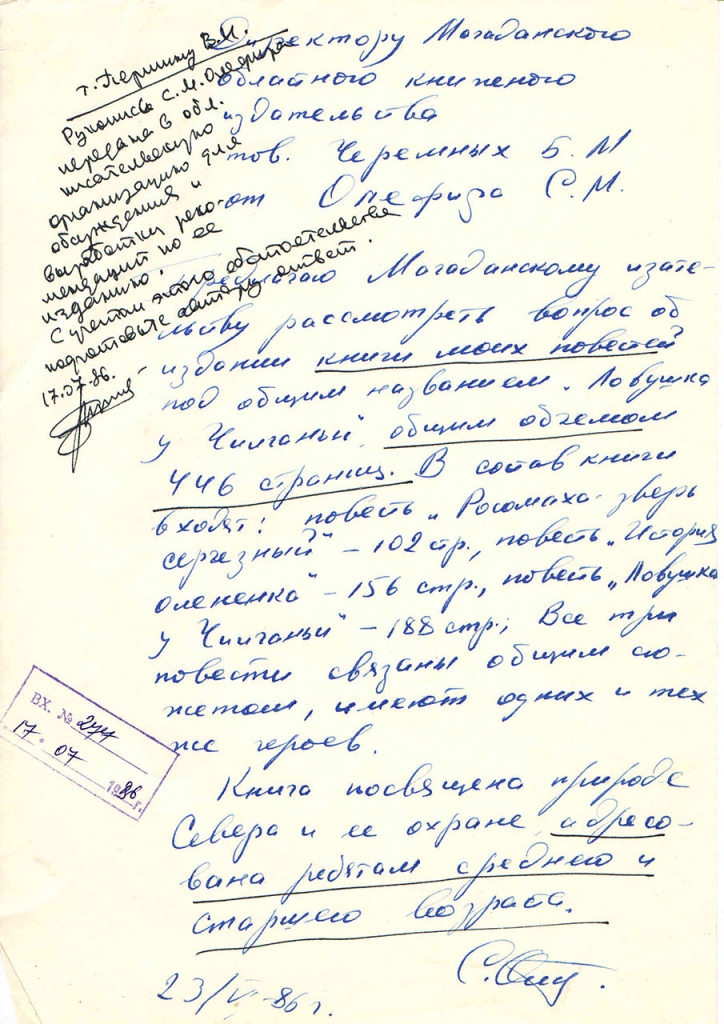 т. Першину В.М.
Рукопись С.М. Олефира
передана в обл.
писательскую
организацию для
обсуждения и
выработки реко-
мендаций по ее
изданию.
С учетом этого обстоятельства
подготовьте автору ответ.
17.07.86.
Директору Магаданского
областного книжного
издательства
тов. Черемных Б. М
от Олефира С.М.
Предлагаю Магаданскому издате-
льству рассмотреть вопрос об
издании книги моих повестей
под общим названием „Ловушка
у Чилганьи", общим объемом
446 страниц. В состав книги
входят: повесть „Росомаха-зверь
серьезный" – 102 стр., повесть „История
олененка" – 156 стр., повесть „Ловушка
у Чилганьи" – 188 стр., Все три
повести связаны общим сю-
жетом, имеют одних и тех
же героев.
Книга посвящена природе
Севера и ее охране, адресо-
вана ребятам среднего и
старшего возраста.
23/VI-86 г.
ВХ. № 277
17 07
1986 г.